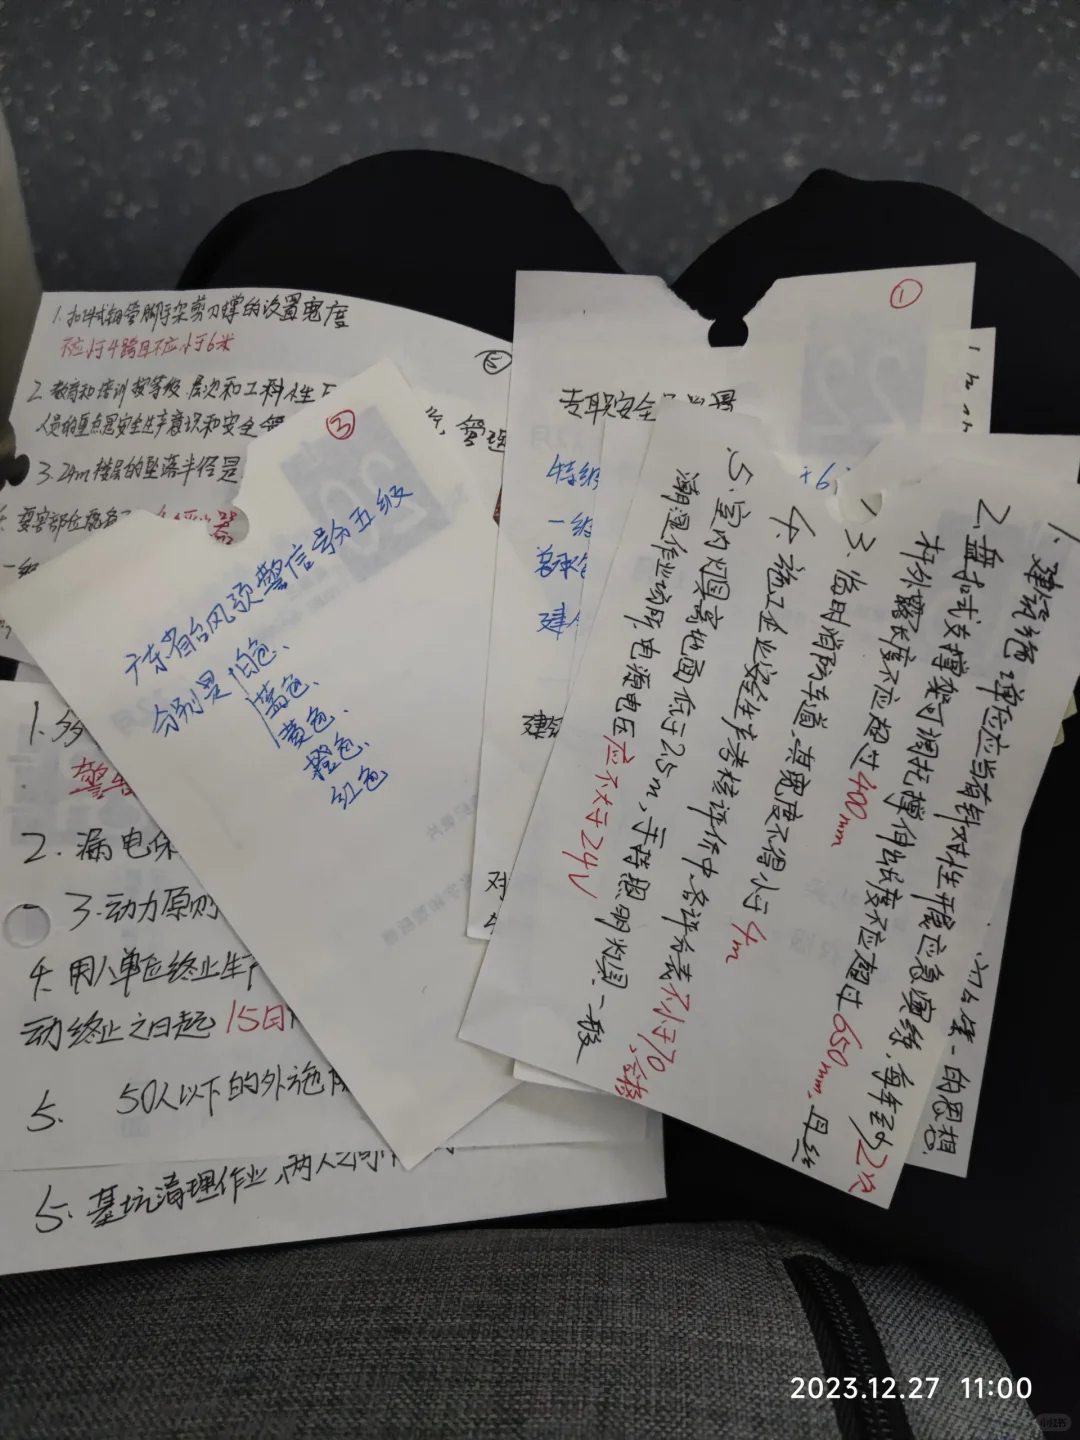 1.扣件式钢管脚手架剪刀撑的设置宽度
不应小于4跨且不应小于6米
⑤
2.教育和培训按等级、层次和工种性
人员的重点是安全生产意识和安全
管理
3.24m楼层的坠落半径是
③
广东省台风预警信号分五级
分别是 白色、
蓝色、
黄色、
橙色、
红色
①
专职安全
特级
一级
总承包
建
对
1.
警
2.漏电保
3.动力原则
4.用人单位终止生产
动终止之日起15日
5. 50人以下的外施队
5.基坑清理作业,两人之间
1.建筑施工单位应当有针对性开展应急演练,每年至少2次
2.盘扣式支撑架可调托撑伸出长度不应超过650mm,且丝
杆外露长度不应超过400mm
3.临时消防车道,其宽度不得小于4m
4.施工企业安全生产考核评价中,各评分表不小于70,合格
5.室内灯具离地面低于2.5m,手持照明灯具,一般
潮湿作业场所电源电压应不大于24V
一的思想
2023.12.27 11:00
小红书